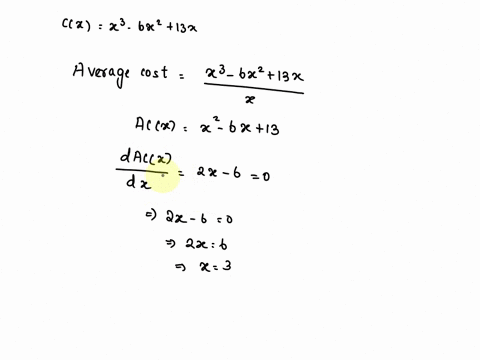 C(x) = x³ - 6x² + 13x
Average cost = (x³ - 6x² + 13x) / x
AC(x) = x² - 6x + 13
dAC(x) / dx = 2x - 6 = 0
⇒ 2x - 6 = 0
⇒ 2x = 6
⇒ x = 3